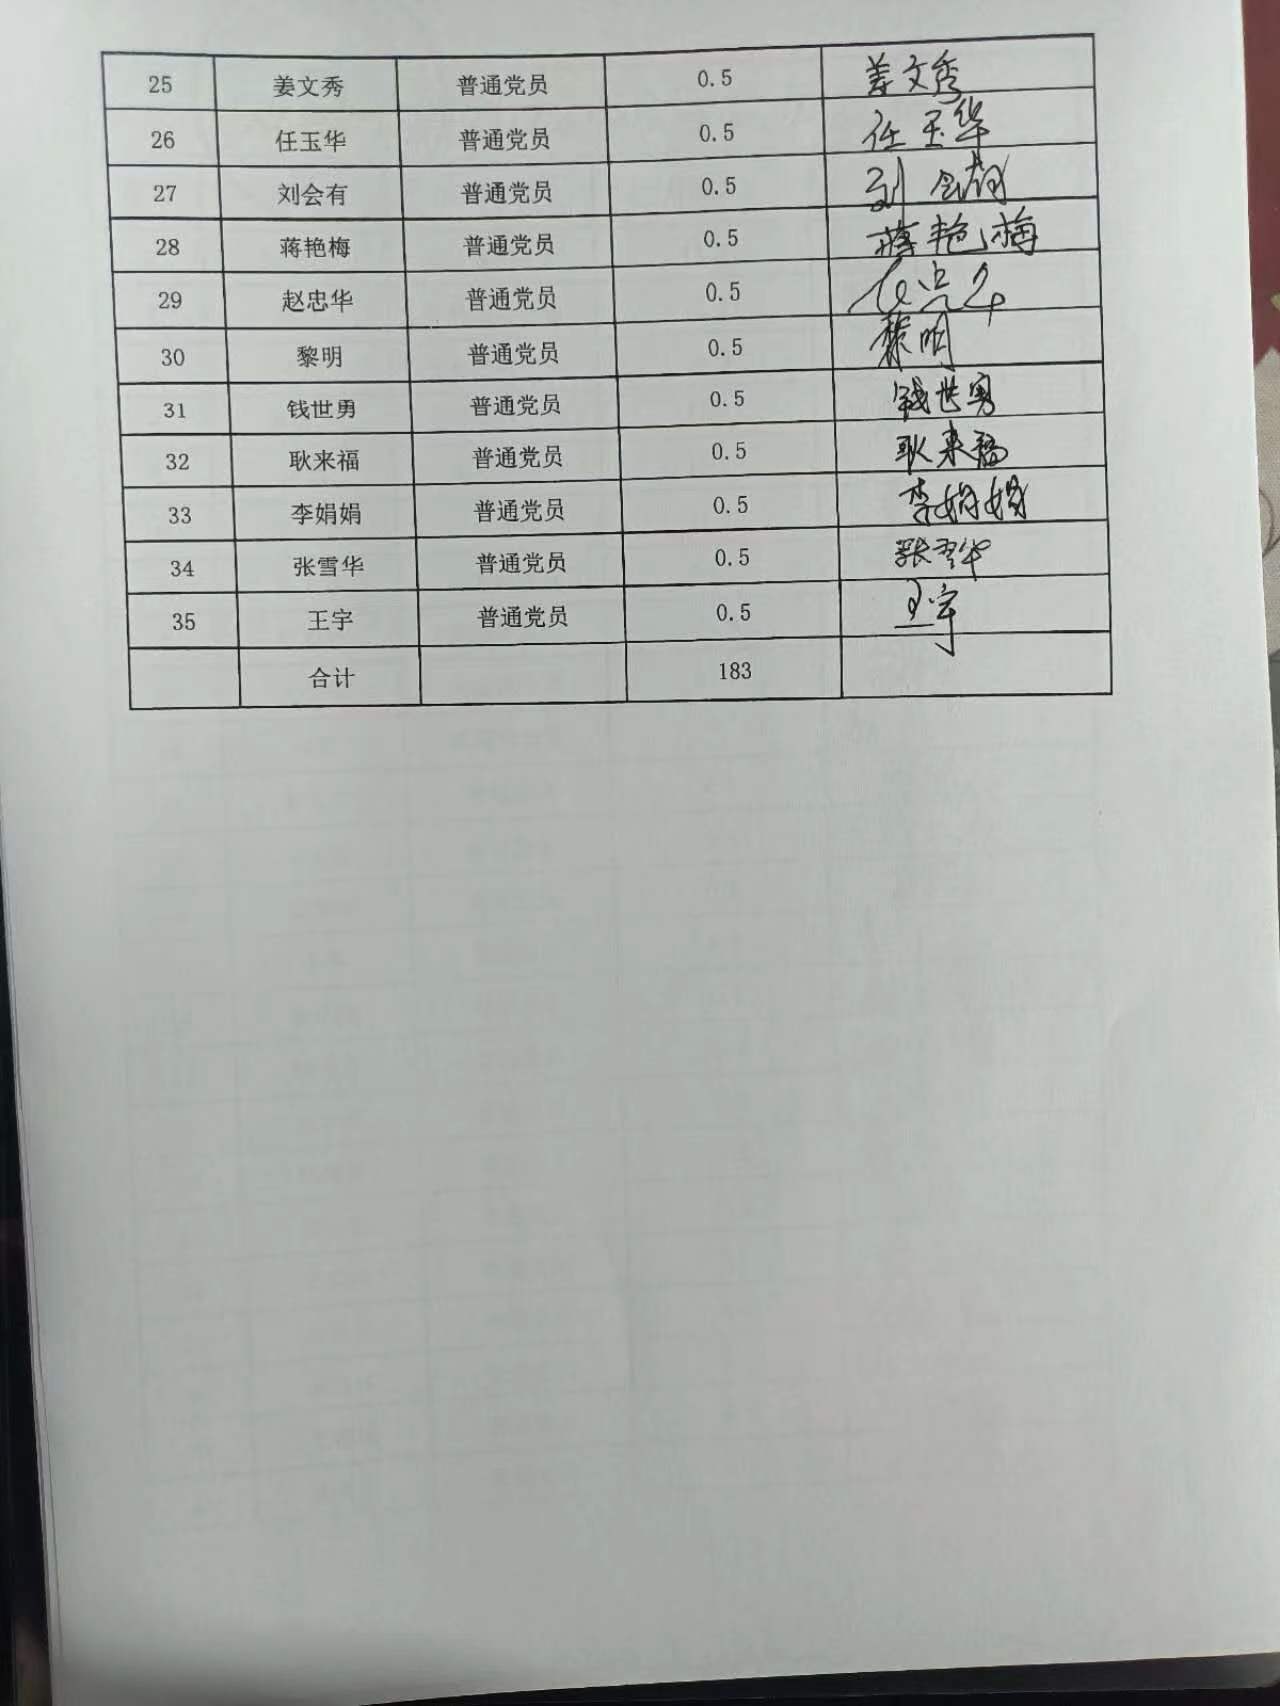 25 姜文秀 普通党员 0.5 姜文秀
26 任玉华 普通党员 0.5 任玉华
27 刘会有 普通党员 0.5 刘会有
28 蒋艳梅 普通党员 0.5 蒋艳梅
29 赵忠华 普通党员 0.5
30 黎明 普通党员 0.5 黎明
31 钱世勇 普通党员 0.5 钱世勇
32 耿来福 普通党员 0.5 耿来福
33 李娟娟 普通党员 0.5 李娟娟
34 张雪华 普通党员 0.5 张雪华
35 王宇 普通党员 0.5 王宇
合计 183